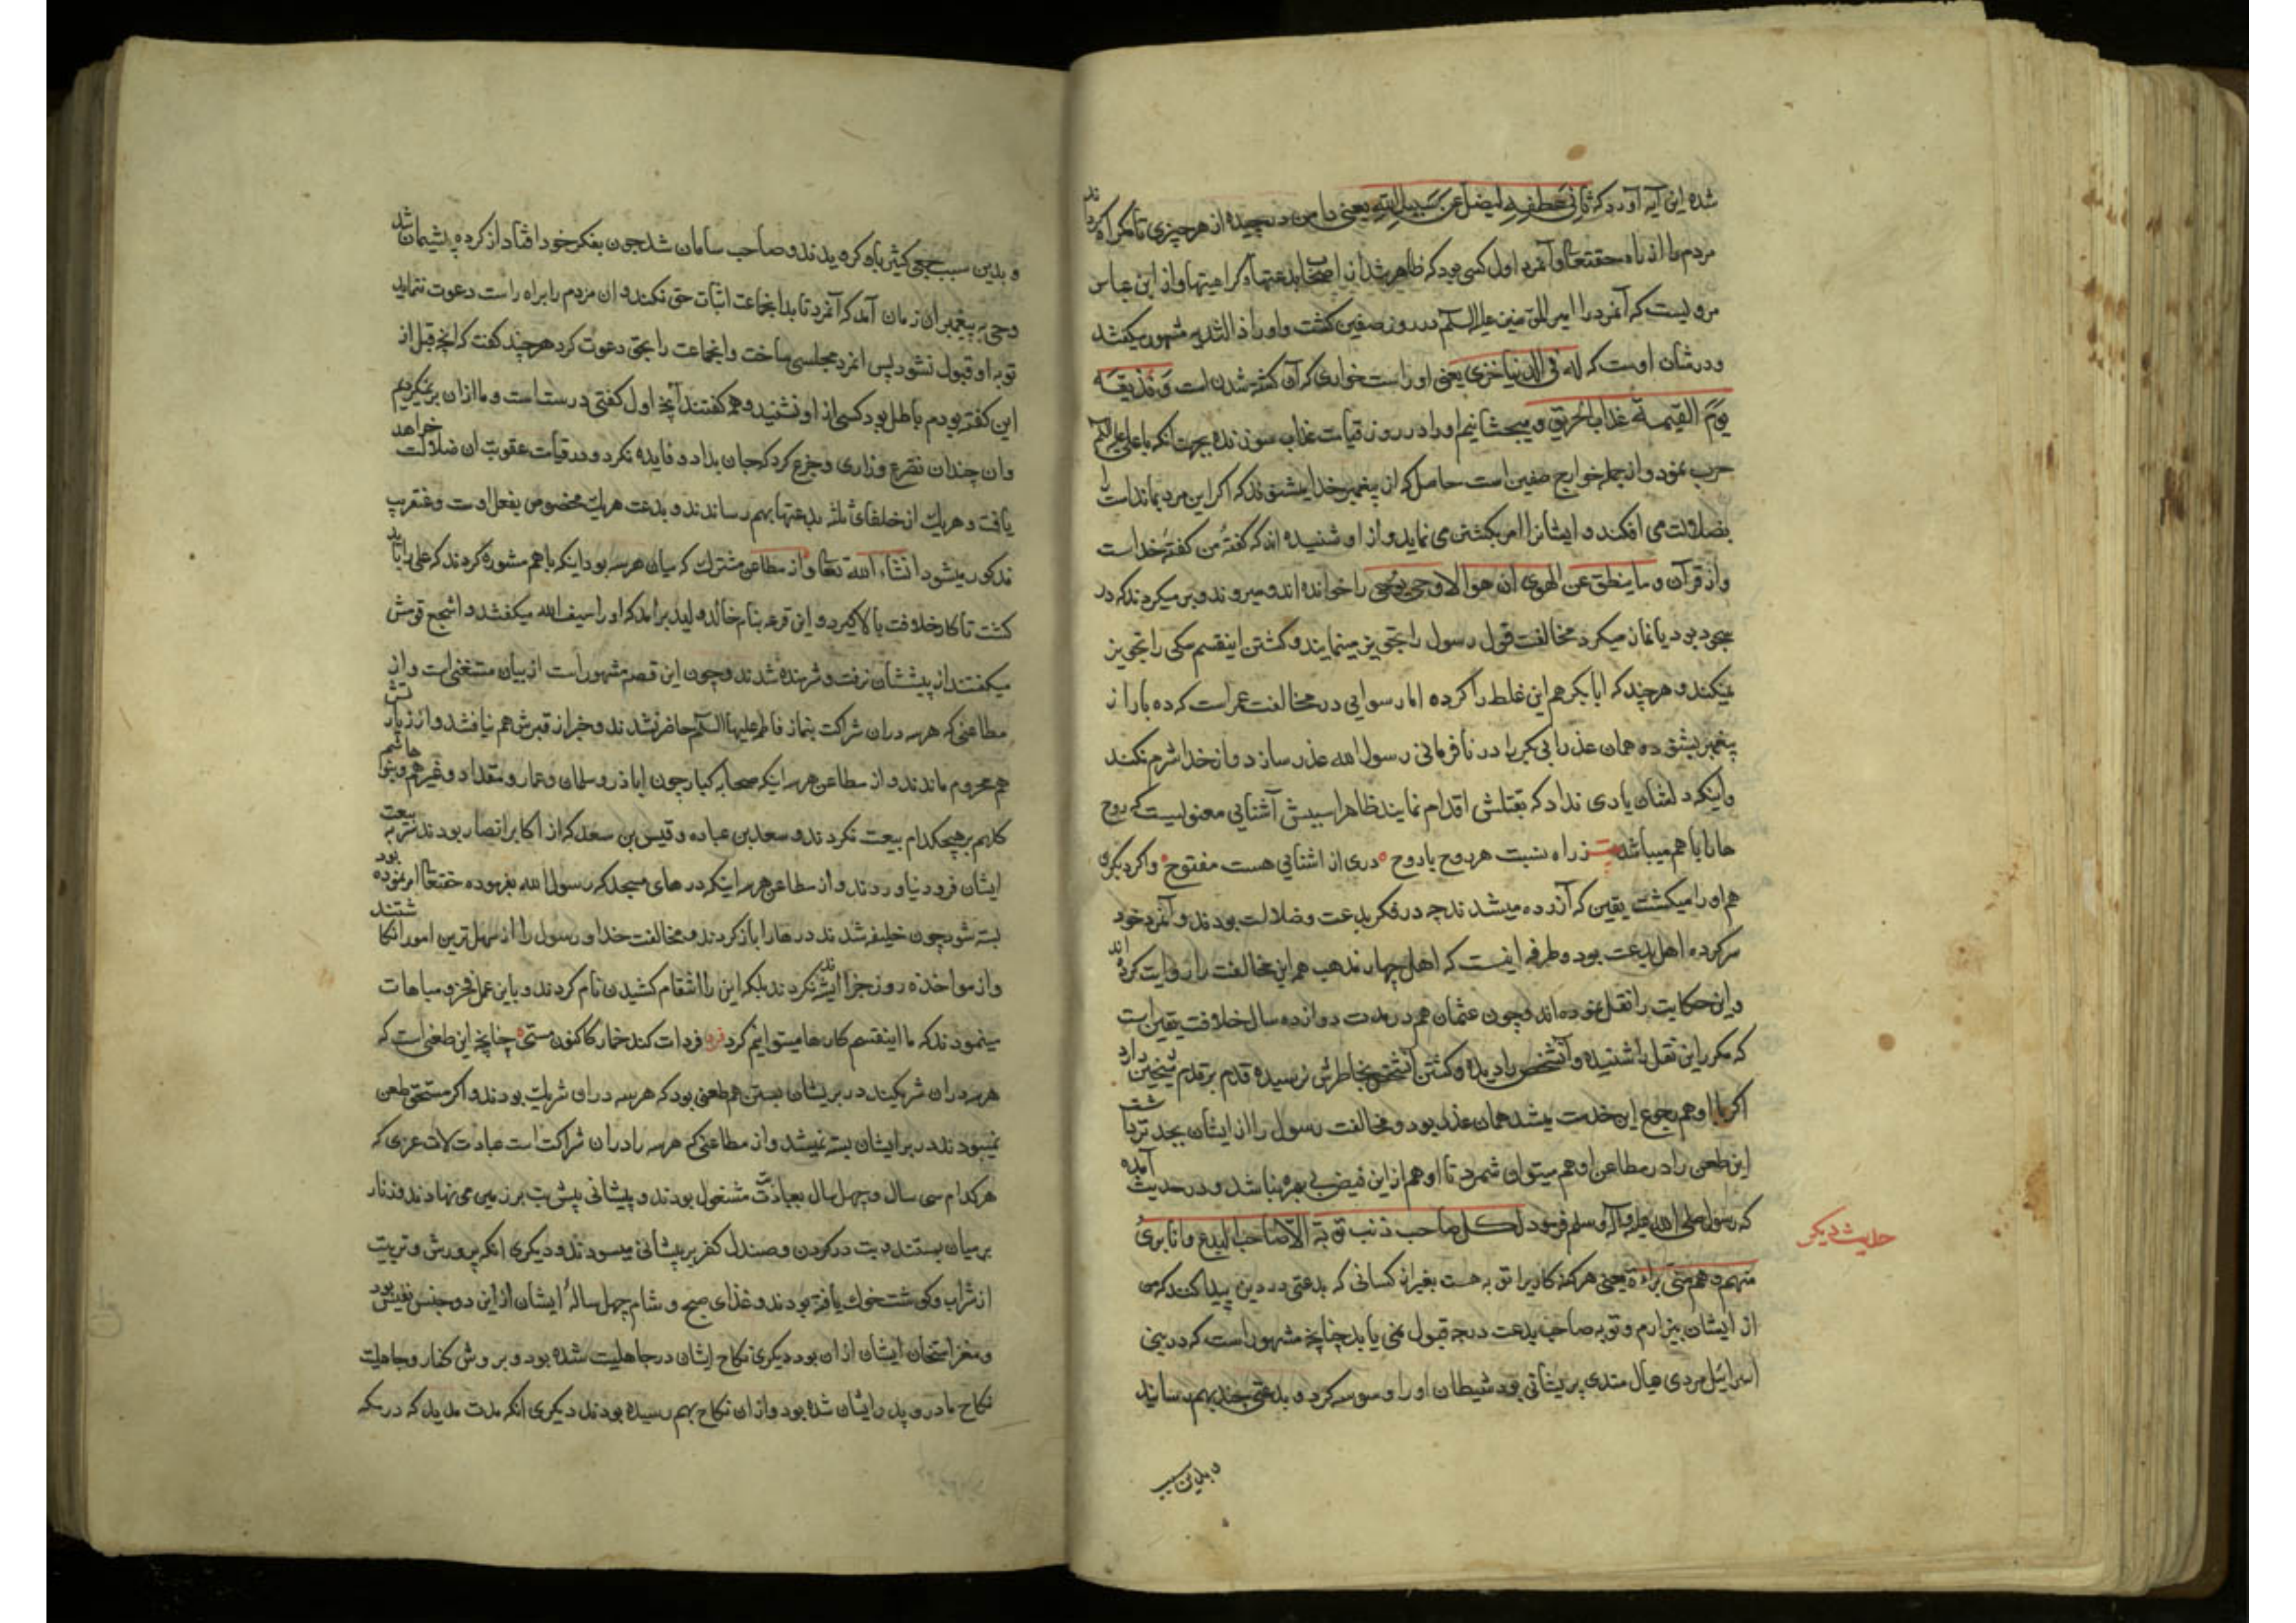 شده این آیه آورد که ثانی عطفه لیضل عن سبیل الله یعنی دامن در چیده از هر چیزی تا گمراه گرداند
مردم را از راه حقتعالی و آنمرد اول کسی بود که ظاهر شد از اصحاب بدعتها و گراهیتها و از ابن عباس
مرویست که آنمرد را امیر المؤمنین علیه السلام در روز صفین کشت و او را ذا الثدیه مشهور میکفتند
و در شان اوست که له فی الدنیا خزی یعنی او راست خواری که آن کشته شدن است و نذیقه
یوم القیمة عذاب الحریق و میچشانیم او را در روز قیامت عذاب سوزنده بجهت آنکه با علی علیه السلام
حرب نمود و از جمله خوارج صفین است حاصل که از پیغمبر خدا میشنوند که اکر این مرد بماند امت را
بضلالت می افکند و ایشانرا امر بکشتن می نماید و از او شنیده اند که گفتهٔ من گفتهٔ خداست
و از قرآن و ما ینطق عن الهوی ان هو الا وحی یوحی را خوانده اند و میروند و بر میکردند که در
سجود بود یا نماز میکرد مخالفت قول رسول را تجویز مینمایند و کشتن اینقسم سکی را تجویز
نمیکنند و هر چند که ابا بکر هم این غلط را کرده اما رسوایی در مخالفت عمر است که دو بار از
پیغمبر بشنود همان عذر ابی بکر را در نافرمانی رسول الله عذر سازد و از خدا شرم نکند
و اینکه دلشان یاری نداد که بقتلش اقدام نمایند ظاهرا سببش آشنایی معنویست که روح
هارا با هم میباشد ز راه نسبت هر روح با روح دری از اشنایی هست مفتوح و اکر دیگری
هم او را میکشت یقین که آزرده میشدند چه در فکر بدعت و ضلالت بودند و آنمرد خود
سر کرده اهل بدعت بود و طرفه اینست که اهل چهار مذهب هم این مخالفت را روایت کرده اند
و این حکایت را نقل نموده اند و چون عثمان هم در مدت دوازده سال خلافت یقین است
که مکرر این نقل را شنیده و آنشخص را دیده و کشتن آنشخص بخاطرش نرسیده قدم بر قدم شیخین دارد
اکر با او هم رجوع این خدمت میشد همان عذر بود و مخالفت رسول را از ایشان بجد تر
این طعن را در مطاعن او هم میتوان شمرد تا او هم از این فیض بی بهره نباشد و در حدیث آمده
که رسول صلی الله علیه و آله و سلم فرمود لکل صاحب ذنب توبة الا صاحب البدع و انا بریٔ
منهم و هم منی براءة یعنی هر کنه کاریرا توبه هست بغیر از کسانی که بدعتی در دین پیدا کنند که من
از ایشان بیزارم و توبه صاحب بدعت درجه قبول نمی یابد چنانچه مشهور است که در بنی
اسرائیل مردی عیال مندی پریشانی بود شیطان او را وسوسه کرد و بدعتی چند بهم رسانید
حدیث دیگر
و بدین سبب
و بدین سبب جمعی کثیر باو کرویدند و صاحب سامان شد چون بفکر خود افتاد از کرده پشیمان شد
وحی به پیغمبر آن زمان آمد که آنمرد تا بدانجماعت اثبات حق نکند و ان مردم را براه راست دعوت ننماید
توبه او قبول نشود پس انمرد مجلسی ساخت و انجماعت را بحق دعوت کرد هر چند کفت که آنچه قبل از
این کفته بودم باطل بود کسی از او نشنید و همه کفتند آنچه اول کفتی درست است و ما از آن بر نمیکردیم
و ان چندان تضرع و زاری و جزع کرد که جان بداد و فایده نکرد و در قیامت عقوبت ان ضلالت خواهد
یافت و هریک از خلفای ثلثه بدعتها بهم رساندند و بدعت هریک مخصوص بفعل اوست و عنقریب
مذکور میشود انشاء الله تعالی و از مطاعن مشترک که میان هر سه بود اینکه با هم مشوره کردند که علی را باید
کشت تا کار خلافت بالا کیرد و این قرعه بنام خالد ولید برامد که او را سیف الله میکفتند و اشجع قومش
میکفتند از پیششان نرفت و شرمنده شدند و چون این قصه مشهور است از بیان مستغنی است و از
مطاعنی که هر سه در ان شراکت نماز فاطمه علیها السلام حاضر نشدند و خبر از قبرش هم نیافتند و از زیارتش
هم محروم ماندند و از مطاعن هر سه اینکه صحابه کبار چون اباذر و سلمان و عمار و مقداد و غیرهم و بنو هاشم
کلهم بر هیچکدام بیعت نکردند و سعد بن عباده و قیس بن سعد که از اکابر انصار بودند سر به بیعت
ایشان فرود نیاوردند و از مطاعن هر سه اینکه درهای مسجد که رسول الله بفرموده حقتعالی امر نموده بود
بسته شود چون خلیفه شدند درها را باز کردند و مخالفت خدا و رسول را از سهل ترین امور انکاشتند
و از مواخذه روز جزا اندیشه نکردند بلکه این را انتقام کشیدن نام کردند و باین عمل فخر و مباهات
مینمودند که ما اینقسم کارها میتوانیم کرد فرد فردات کند خمار کاکنون مستی چنانچه این طعنی است که
هر سه در ان شریکند در بر ایشان بستن هم طعنی بود که هر سه در ان شریک بودند و اکر مستحق طعن
نمیبودند در بر ایشان بسته نمیشد و از مطاعنی که هر سه را در ان شراکت است عبادت لات عزی که
هر کدام سی سال و چهل سال بعبادت مشغول بودند و پیشانی پیش بت بر زمین می نهادند و زنار
بر میان بستند و بت در کردن و صندل کفر بر پیشانی میسودند و دیگری انکه پرورش و تربیت
از شراب و کوشت خوک یافته بودند و غذای صبح و شام چهل سالهٔ ایشان از این دو جنس نفیس بود
و مغز استخوان ایشان از ان بود دیگری نکاح ایشان در جاهلیت شده بود و بر وش کفار و جاهلیت
نکاح مادر و پدر ایشان شده بود و از ان نکاح بهم رسیده بودند دیکری انکه مدت مدید که در مکه